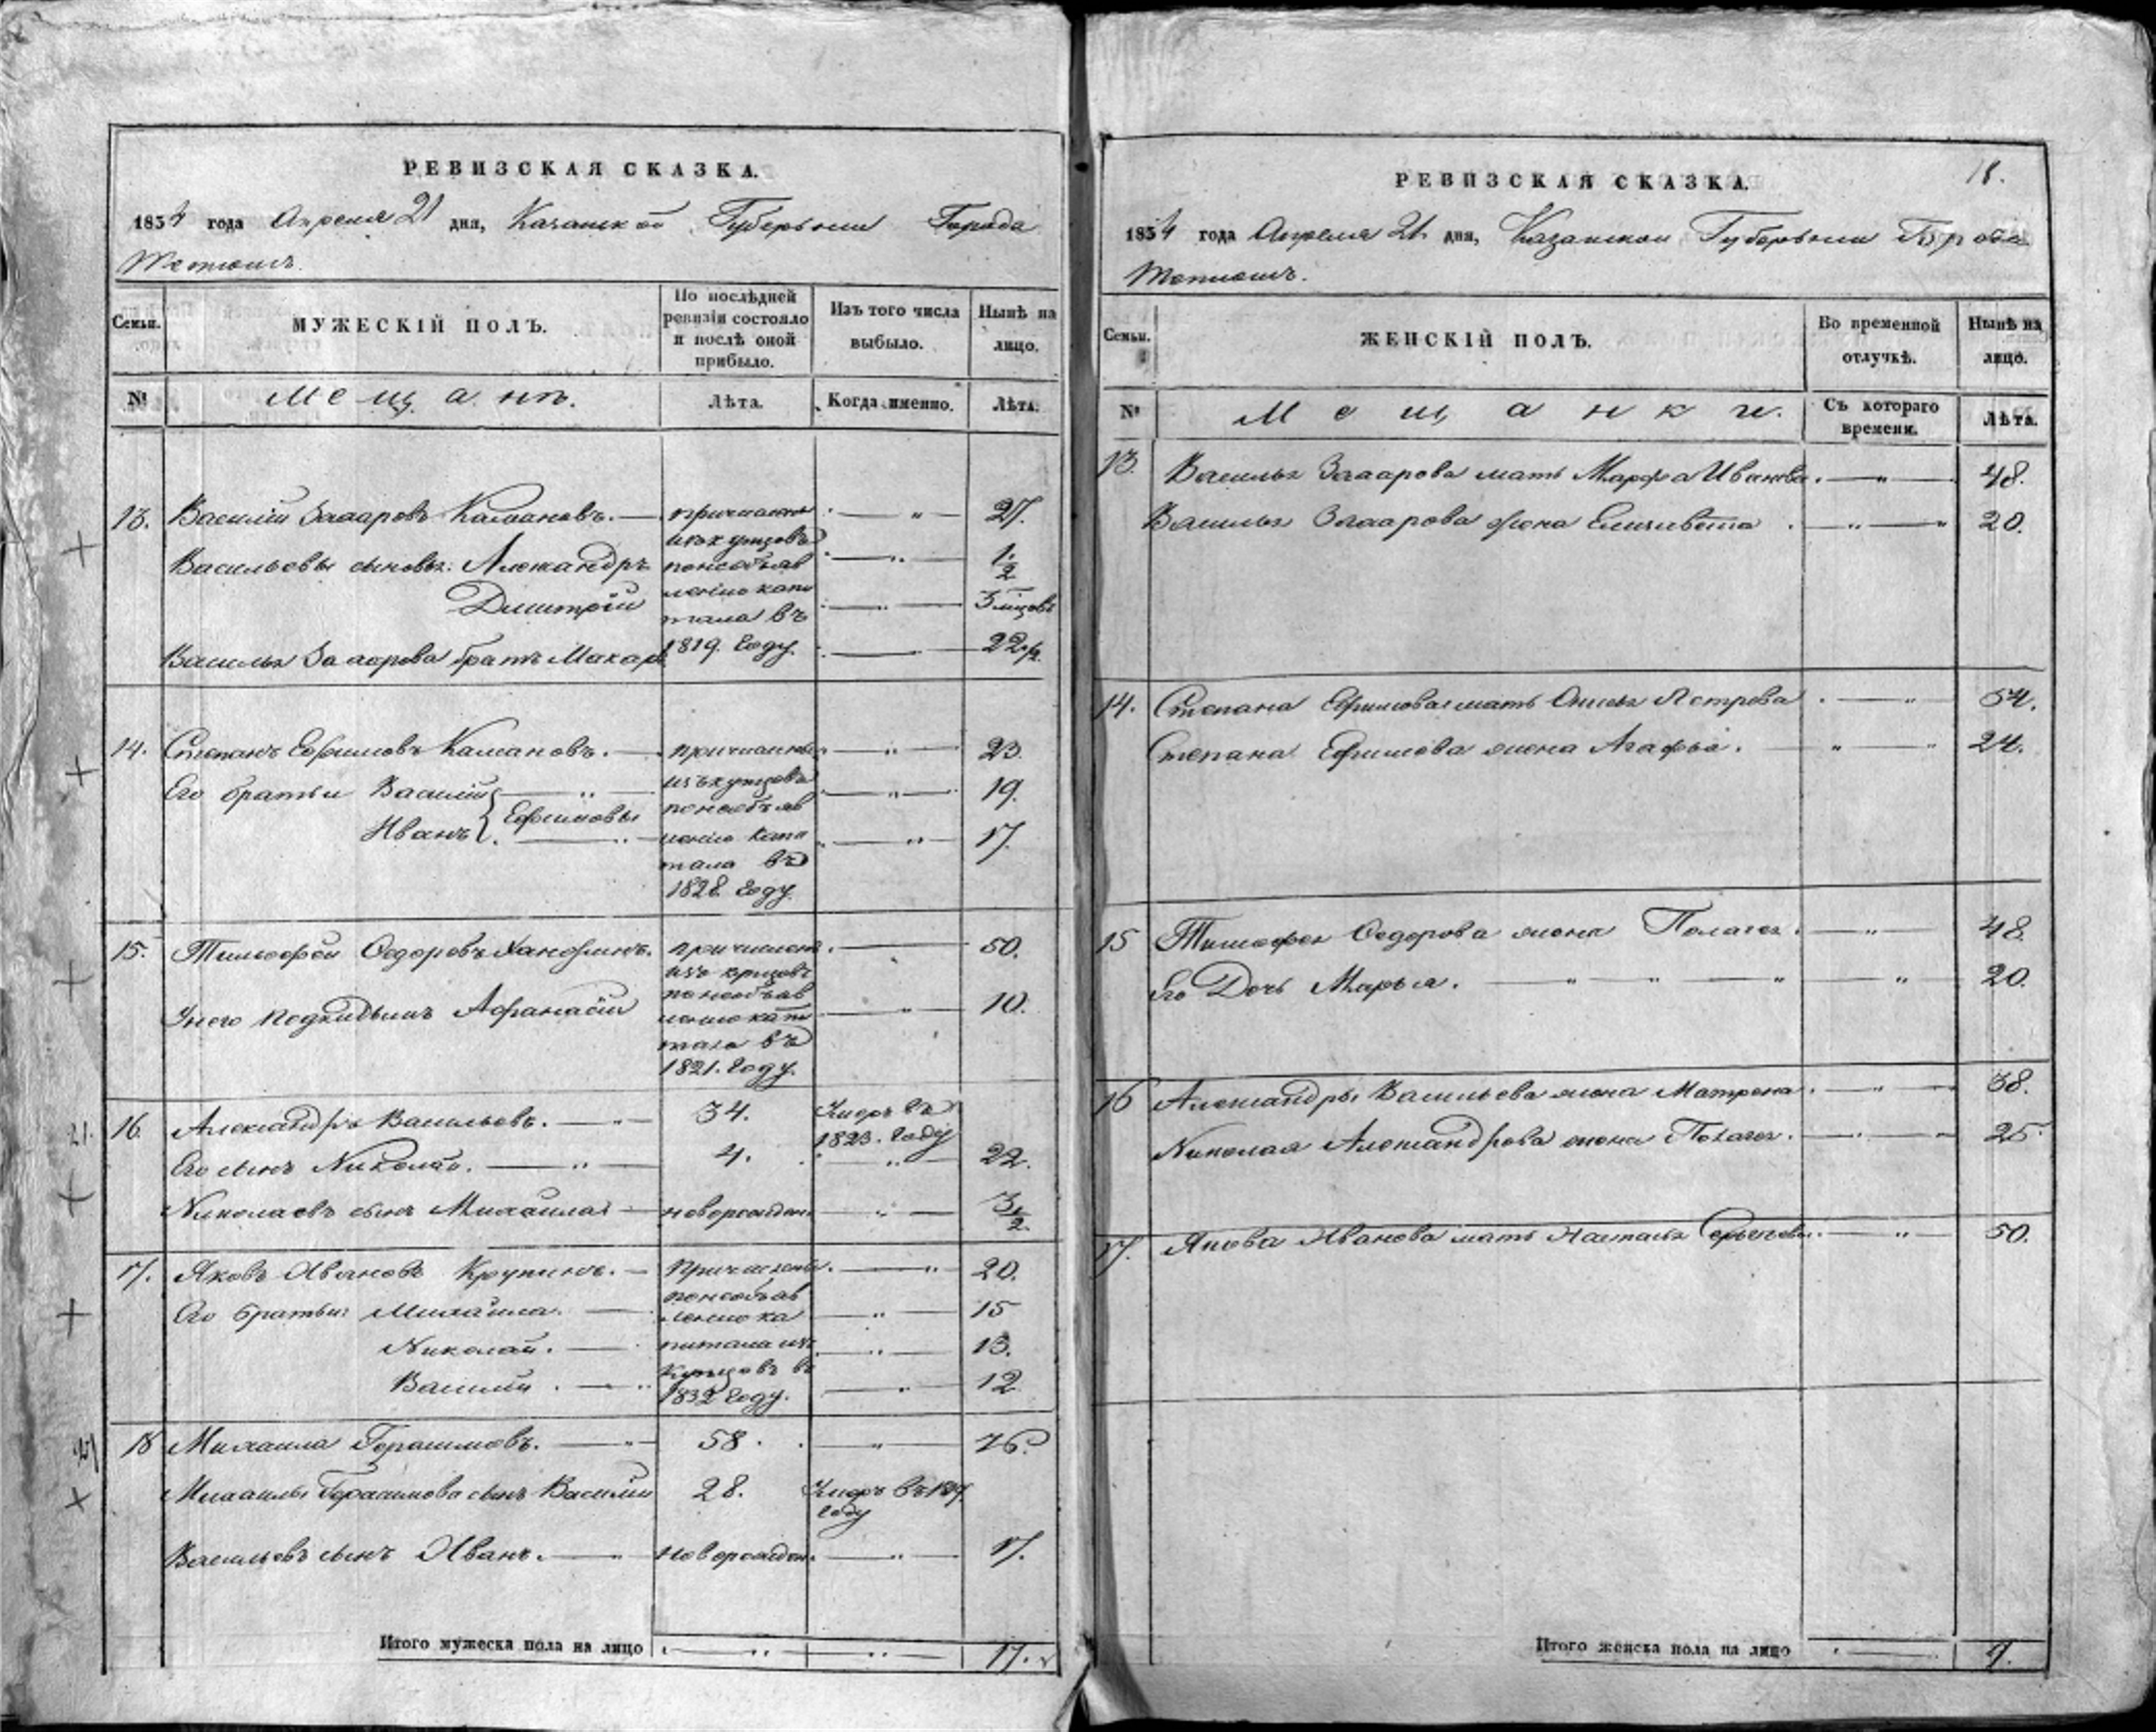 РЕВИЗСКАЯ СКАЗКА.
1834 года Апреля 21 дня, Казанской Губерьнии Города
Тетюшъ.
Семьи.
МУЖЕСКІЙ ПОЛЪ.
По послѣдней ревизіи состояло и послѣ оной прибыло.
Изъ того числа выбыло.
Нынѣ на лицо.
№
Мещанъ.
Лѣта.
Когда именно.
Лѣта.
13. Василій Захаровъ Камановъ. причислены 27.
изъ купцовъ
Васильевы сыновья: Александръ понеобъяв 1 1/2
Дмитрій ленію капи 3 мѣсцовъ
тала въ
Василья Захарова братъ Макаръ 1819 году. 22 1/2
14. Степанъ Ефимовъ Камановъ. причислены 23.
изъ купцовъ
Его братьи Василій 19.
понеобъяв
Ефимовы
Иванъ ленію капи 17.
тала въ
1828 году.
15. Тимофей Федоровъ причислены 50.
изъ купцовъ
понеобъяв
У него подкидышъ Афанасій ленію капи 10.
тала въ
1821. году.
21. 16. Александръ Васильевъ. 34. Умеръ въ
1823. году
Его сынъ Николай. 4. 22.
Николаевъ сынъ Михайла новорожден. 3 1/2.
17. Яковъ Ивановъ Крупинъ. Причислены 20.
понеобъяв
Его братьи: Михайла. ленію ка 15
Николай. питала изъ 13.
Купцовъ въ
Василій. 1832 году. 12
18 Михайла Герасимовъ. 58. 76.
Михайлы Герасимова сынъ Василій 28. Умеръ въ
году
Васильевъ сынъ Иванъ. новорожден. 17.
Итого мужеска пола на лицо 17.
18.
РЕВИЗСКАЯ СКАЗКА.
1834 года Апреля 21 дня, Казанской Губерьнии Города
Тетюшъ.
Семьи.
ЖЕНСКІЙ ПОЛЪ.
Во временной отлучкѣ.
Нынѣ на лицо.
№
Мещанки.
Съ котораго времени.
Лѣта.
13. Василья Захарова мать Марфа Иванова. 48.
Василья Захарова жена Елизавета 20.
14. Степана Ефимова мать 54.
Степана Ефимова жена Агафья. 24.
15 Тимофея Федорова жена Пелагея. 48.
Его Дочь Марья. 20.
16 Александры Васильева жена Матрена. 38.
Николая Александрова жена Пелагея. 25.
17. Якова Иванова мать Наталья Сергеева. 50.
Итого женска пола на лицо 9.